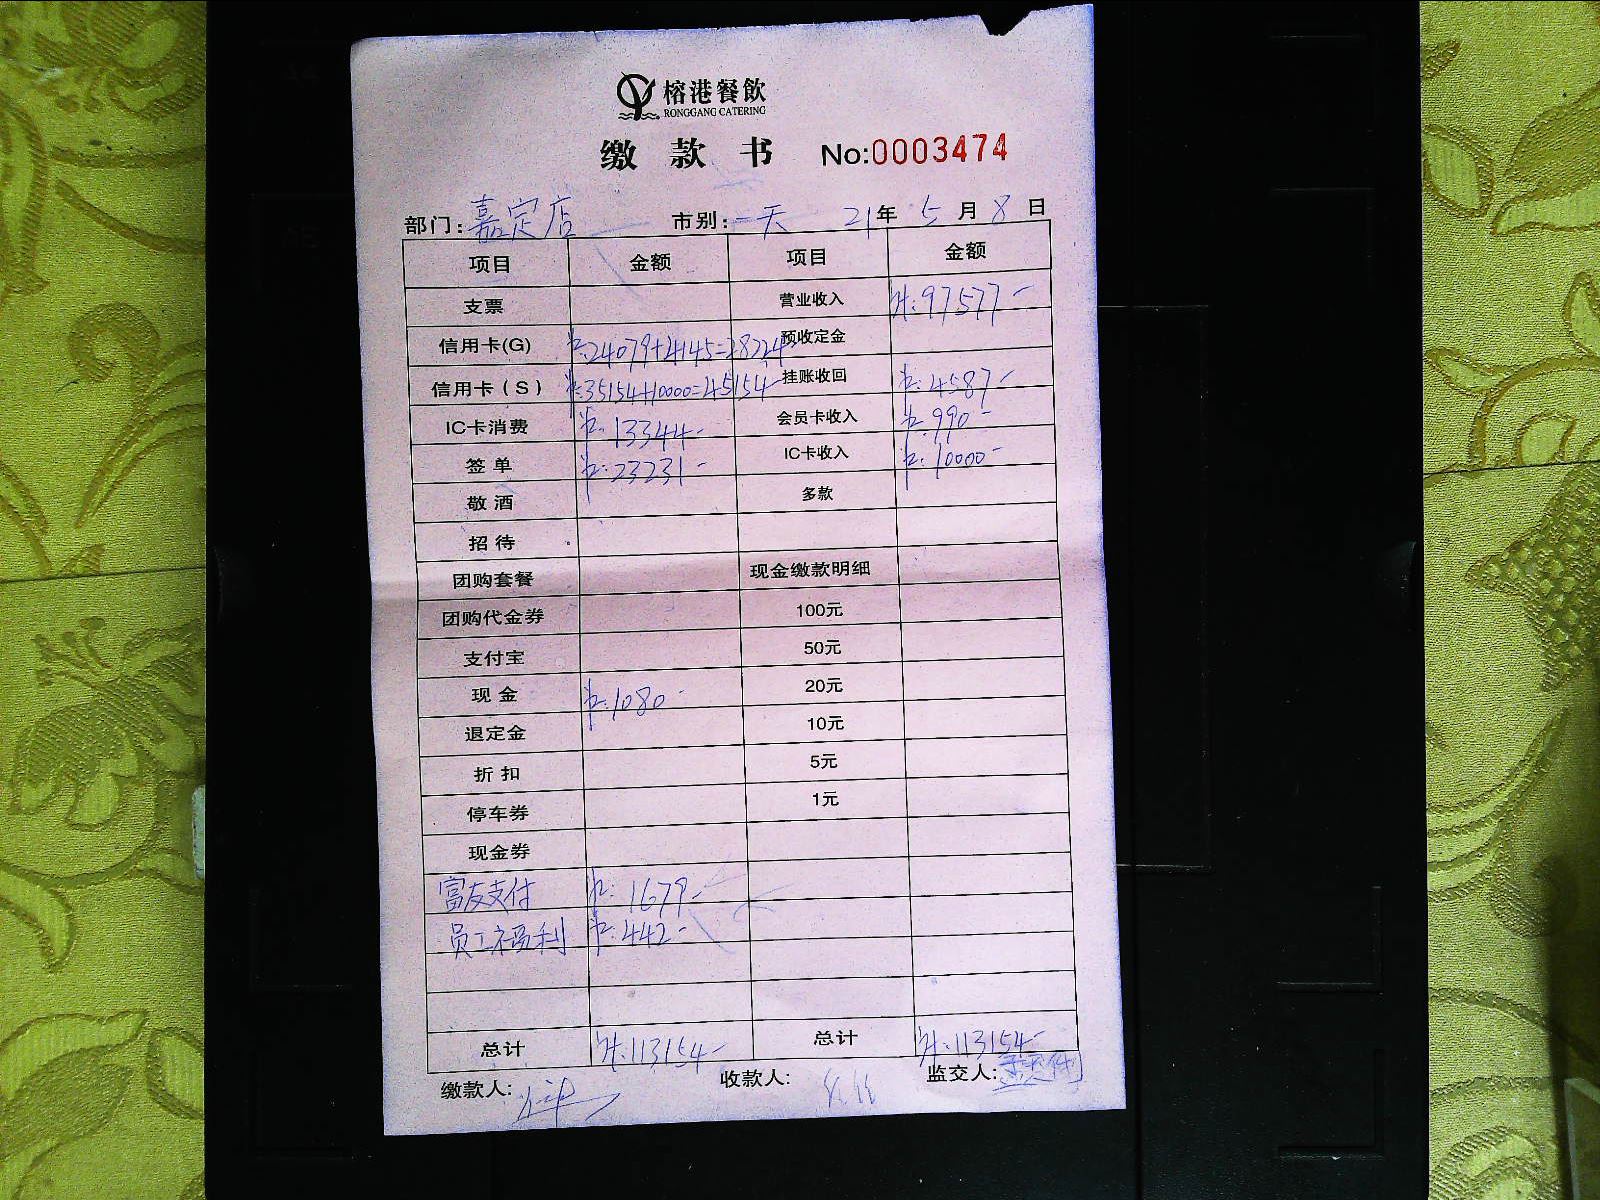 榕港餐飲
RONGGANG CATERING
缴款书 No:0003474
部门:嘉定店 市别:一天 21年5月8日
项目 金额 项目 金额
支票 营业收入 97577-
信用卡(G) 24079+4145=28224 预收定金
信用卡(S) 35154+10000=45154 挂账收回 4587-
IC卡消费 13344- 会员卡收入 990-
签单 23231- IC卡收入 10000-
敬酒 多款
招待
团购套餐 现金缴款明细
团购代金券 100元
支付宝 50元
现金 1080- 20元
退定金 10元
折扣 5元
停车券 1元
现金券
富友支付 1679-
员工福利 442-
总计 113154- 总计 113154-
缴款人: 收款人: 监交人: